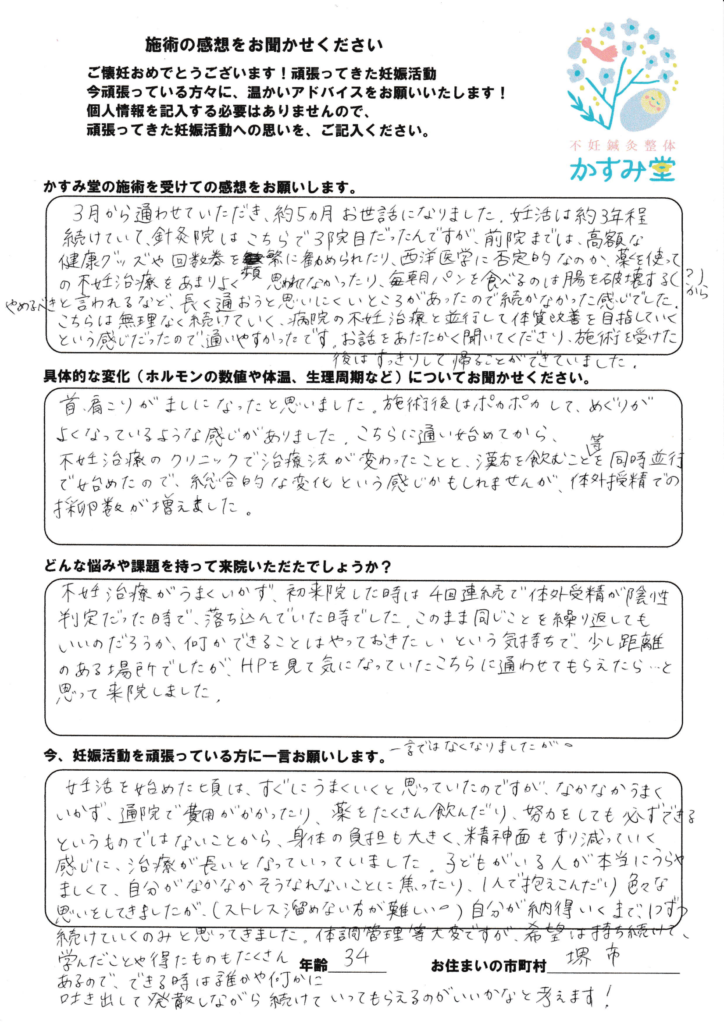 施術の感想をお聞かせください
ご懐妊おめでとうございます！頑張ってきた妊娠活動
今頑張っている方々に、温かいアドバイスをお願いいたします！
個人情報を記入する必要はありませんので、
頑張ってきた妊娠活動への思いを、ご記入ください。
不妊鍼灸整体
かすみ堂
かすみ堂の施術を受けての感想をお願いします。
3月から通わせていただき、約5ヵ月お世話になりました。妊活は約3年程
続けていて、針灸院はこちらで3院目だったんですが、前院までは、高額な
健康グッズや回数券を頻繁に勧められたり、西洋医学に否定的なのか、薬を使って
の不妊治療をあまりよく思われなかったり、毎朝パンを食べるのは腸を破壊する(?)から
やめるべきと言われるなど、長く通おうと思いにくいところがあったので続かなかった感じでした。
こちらは無理なく続けていく、病院の不妊治療と並行して体質改善を目指していく
という感じだったので通いやすかったです。お話をあたたかく聞いてくださり、施術を受けた
後はすっきりして帰ることができていました。
具体的な変化（ホルモンの数値や体温、生理周期など）についてお聞かせください。
首、肩こりがましになったと思いました。施術後はポカポカして、めぐりが
よくなっているような感じがありました。こちらに通い始めてから、
不妊治療のクリニックで治療法が変わったことと、漢方を飲むこと等を同時並行
で始めたので、総合的な変化という感じかもしれませんが、体外授精での
採卵数が増えました。
どんな悩みや課題を持って来院いただたでしょうか？
不妊治療がうまくいかず、初来院した時は4回連続で体外受精が陰性
判定だった時で、落ち込んでいた時でした。このまま同じことを繰り返しても
いいのだろうか、何かできることはやっておきたいという気持ちで、少し距離
のある場所でしたが、HPを見て気になっていたこちらに通わせてもらえたら…と
思って来院しました。
今、妊娠活動を頑張っている方に一言お願いします。
一言ではなくなりましたが。
妊活を始めた頃は、すぐにうまくいくと思っていたのですが、なかなかうまく
いかず、通院で費用がかかったり、薬をたくさん飲んだり、努力をしても必ずできる
というものではないことから、身体の負担も大きく、精神面もすり減っていく
感じに、治療が長いとなっていっていました。子どもがいる人が本当にうらや
ましくて、自分がなかなかそうなれないことに焦ったり、1人で抱えこんだり色々な
思いをしてきましたが、(ストレス溜めない方が難しい。)自分が納得いくまで、1つずつ
続けていくのみと思ってきました。体調管理等大変ですが、希望は持ち続けて、
学んだことや得たものもたくさん
あるので、できる時は誰かや何かに
吐き出して発散しながら続けていってもらえるのがいいかなと考えます！
年齢 34 お住まいの市町村 堺市